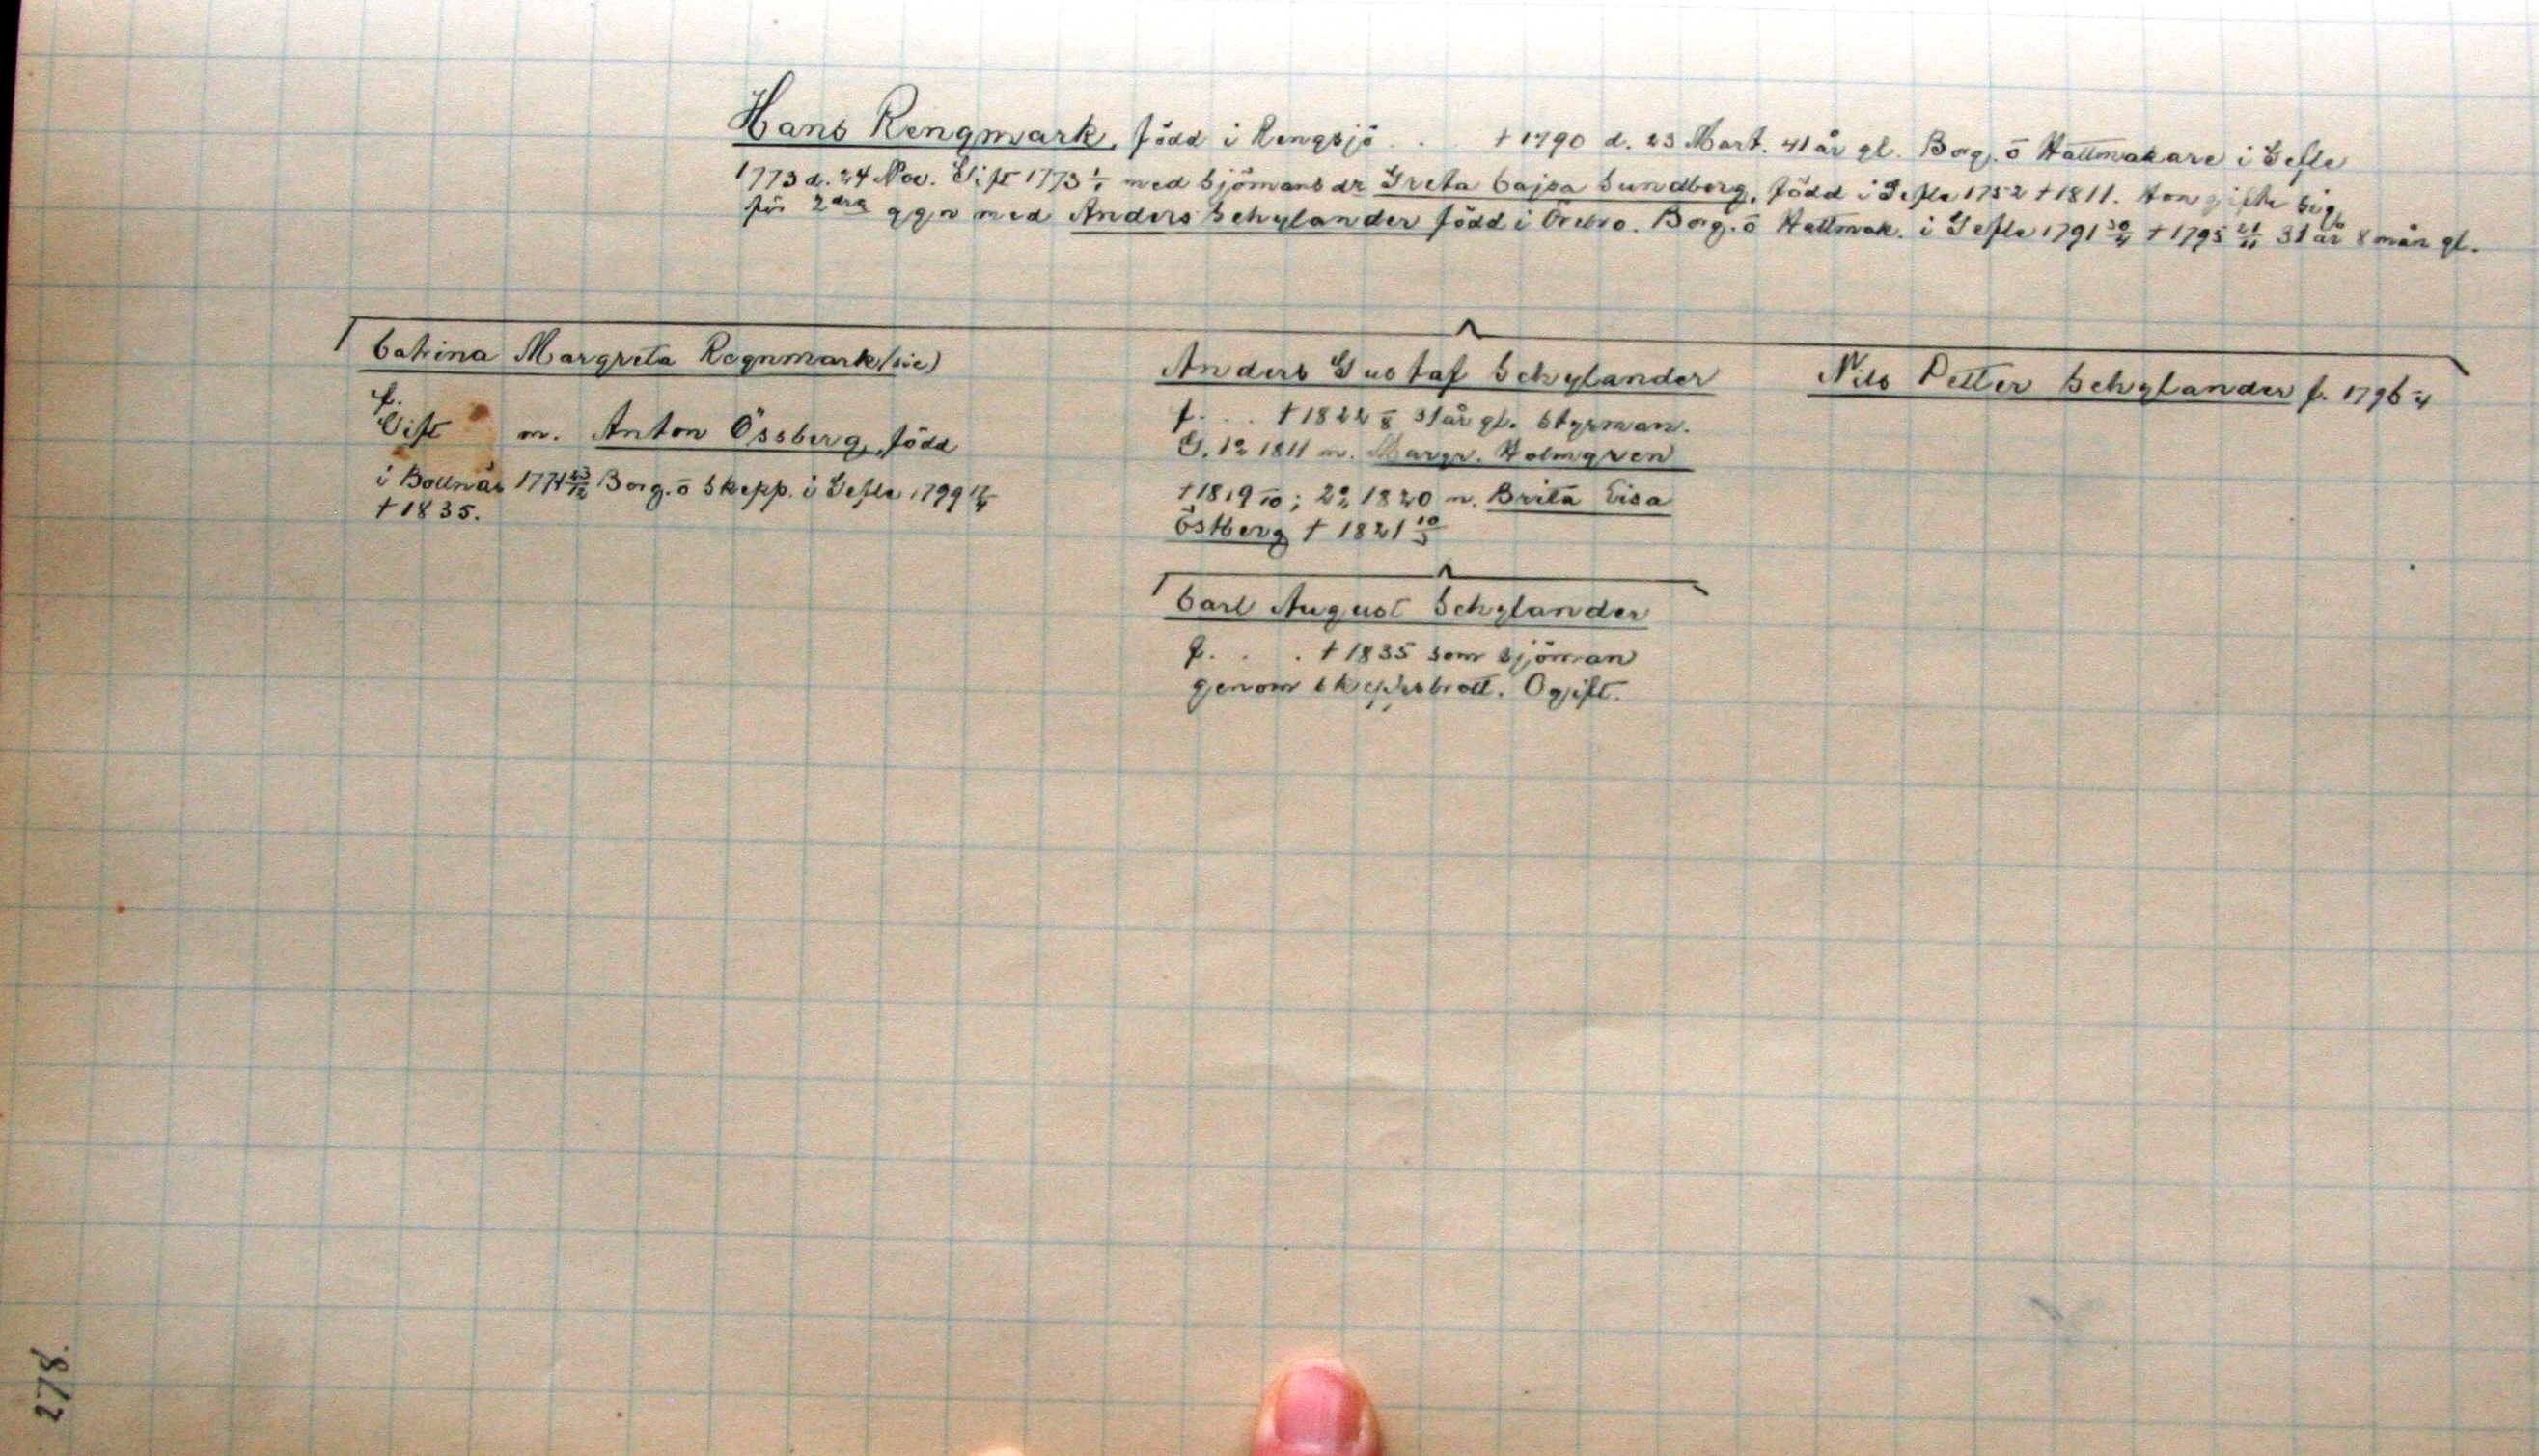 Hans Rengmark, född i Rengsjö . . . † 1790 d. 23 Mart. 41 år gl. Borg. ō Hattmakare i Gefle
1773 d. 24 Nov. Gift 1773 med Sjömans dr Greta Cajsa Sundberg, född i Gefle 1752 † 1811. Hon gifte sig
för 2dra ggn med Anders Schylander född i Örebro. Borg. ō Hattmak. i Gefle 1791 30/4 † 1795 21/11 31 år 8 mån gl.
Catrina Margreta Regnmark (sic)
f.
Gift m. Anton Össberg, född
i Bollnäs 1771 23/12 Borg. ō Skepp. i Gefle 1799
† 1835.
Anders Gustaf Schylander
f. . . † 1822 31 år gl. Styrman.
G. 1º 1811 m. Margr. Holmgren
† 1819; 2º, 1820 m. Brita Lisa
Östberg † 1821
Carl August Schylander
f. . . † 1835 som sjöman
genom skeppsbrott. Ogift.
Nils Petter Schylander f. 1796
278.